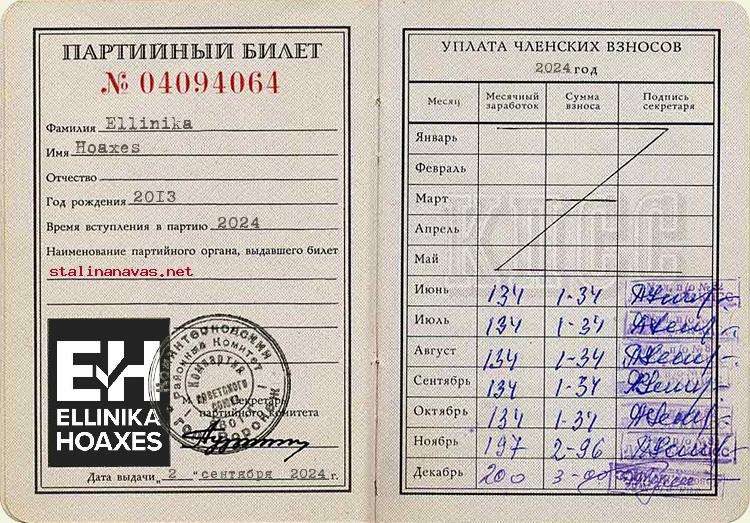 ПАРТИЙНЫЙ БИЛЕТ
№ 04094064
Фамилия Ellinika
Имя Hoaxes
Отчество
Год рождения 2013
Время вступления в партию 2024
Наименование партийного органа, выдавшего билет
stalinanavas.net
EH
ELLINIKA
HOAXES
Районный Комитет
Компартия
Советского
Союза
М. П. Секретарь
партийного комитета
Дата выдачи „ 2 " сентября 2024 г.
УПЛАТА ЧЛЕНСКИХ ВЗНОСОВ
2024 год
Месяц Месячный заработок Сумма взноса Подпись секретаря
КПСС
Январь
Февраль
Март
Апрель
Май
Июнь 134 1-34
Июль 134 1-34
Август 134 1-34
Сентябрь 134 1-34
Октябрь 134 1-34
Ноябрь 197 2-96
Декабрь 200